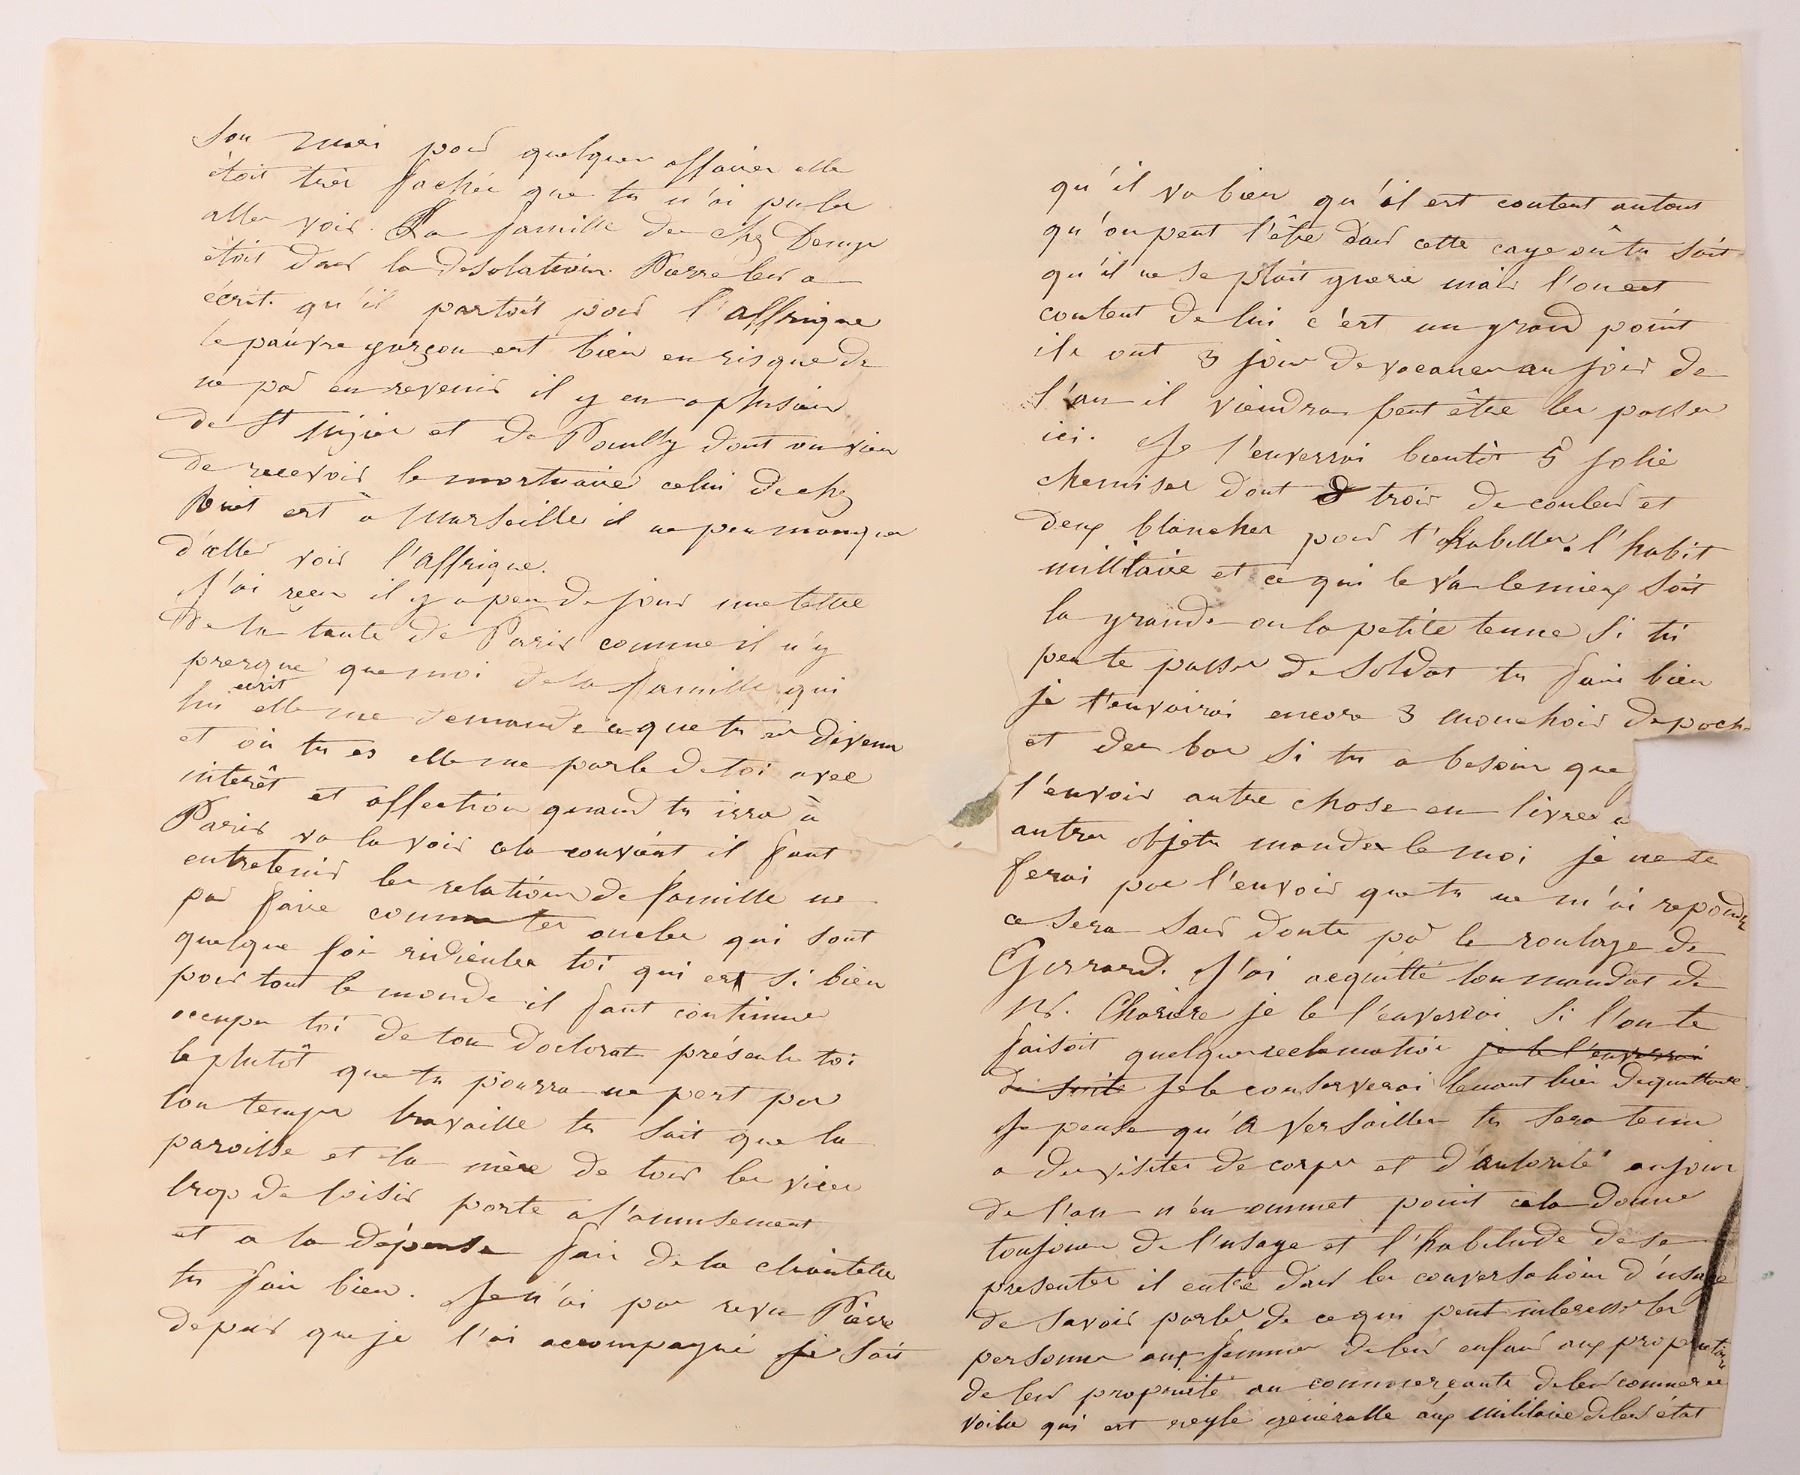 son mari pour quelques affaires elle
étoit très fachée que tu n'ai pu les
aller voir. La famille de chez
étoit dans la desolation. Pierre leur a
écrit qu'il partoit pour l'affrique
le pauvre garçon est bien en risque de
ne pas en revenir il y en a plusieur
de St et de Pouilly dont on vien
de recevoir le mortuaire celui de chez
est à Marseille il ne peu manquer
d'aller voir l'affrique.
J'ai reçu il y a peu de jours une lettre
de la tante de Paris comme il n'y
presque que moi de la famille qui
lui écrit elle me demande ce que tu es devenu
et où tu es elle me parle de toi avec
interêt et affection quand tu irra à
Paris va la voir cela convient il faut
entretenir les relations de famille ne
pas faire comme tes oncles qui sont
quelque foi ridicules toi qui est si bien
pour tout le monde il faut continuer
occupe toi de ton doctorat présente toi
le plutôt que tu pourra ne pert pas
ton temps travaille tu sait que la
paroisse et la mère de tous les vices
trop de loisir porte a l'amusement
et a la dépense fais de la clientelle
tu fais bien. Je n'ai pas revu Pierre
depuis que je l'ai accompagné je sais
qu'il va bien qu'il est content autant
qu'on peut l'être dans cette cage où tu sais
qu'il ne se plait guere mais l'on est
content de lui c'est un grand point
ils ont 3 jour de vacances au jour de
l'an il viendra peut être les passer
ici. Je t'enverrai bientôt 5 jolie
chemises dont trois de couleur et
deux blanches pour t'habiller. l'habit
militaire et ce qui te va le mieux soit
la grande ou la petite tenue si tu
peu te passer de soldat tu fais bien
je t'envoirai encore 3 mouchoir de poche
et des bas si tu a besoin que
t'envoir autre chose en livres
autres objets mande le moi je ne te
ferai pas l'envoir que tu ne m'ai repondu
ce sera sans doute par le roulage de
Gerrard. J'ai acquitté ton mandat de
Mr. je te l'enverrai si l'on te
faisoit quelques reclamation je te l'enverrai
de suite je le conserverai tenant lieu de quittance
Je pense qu'a Versailles tu sera tenu
a des visites de corps et d'autorité au jour
de l'an n'en ommet point cela donne
toujours de l'usage et l'habitude de se
presenter il entre dans les conversations d'usage
de savoir parler de ce qui peut interesser les
personnes aux femmes de leur enfans aux proprietaires
de leur propriété au commerçants de leur commerce
voila qui est regle générale aux militaire de leur etat